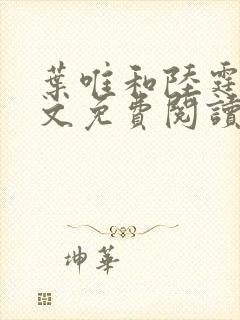 葉唯和陸霆
文免費閱讀
坤華